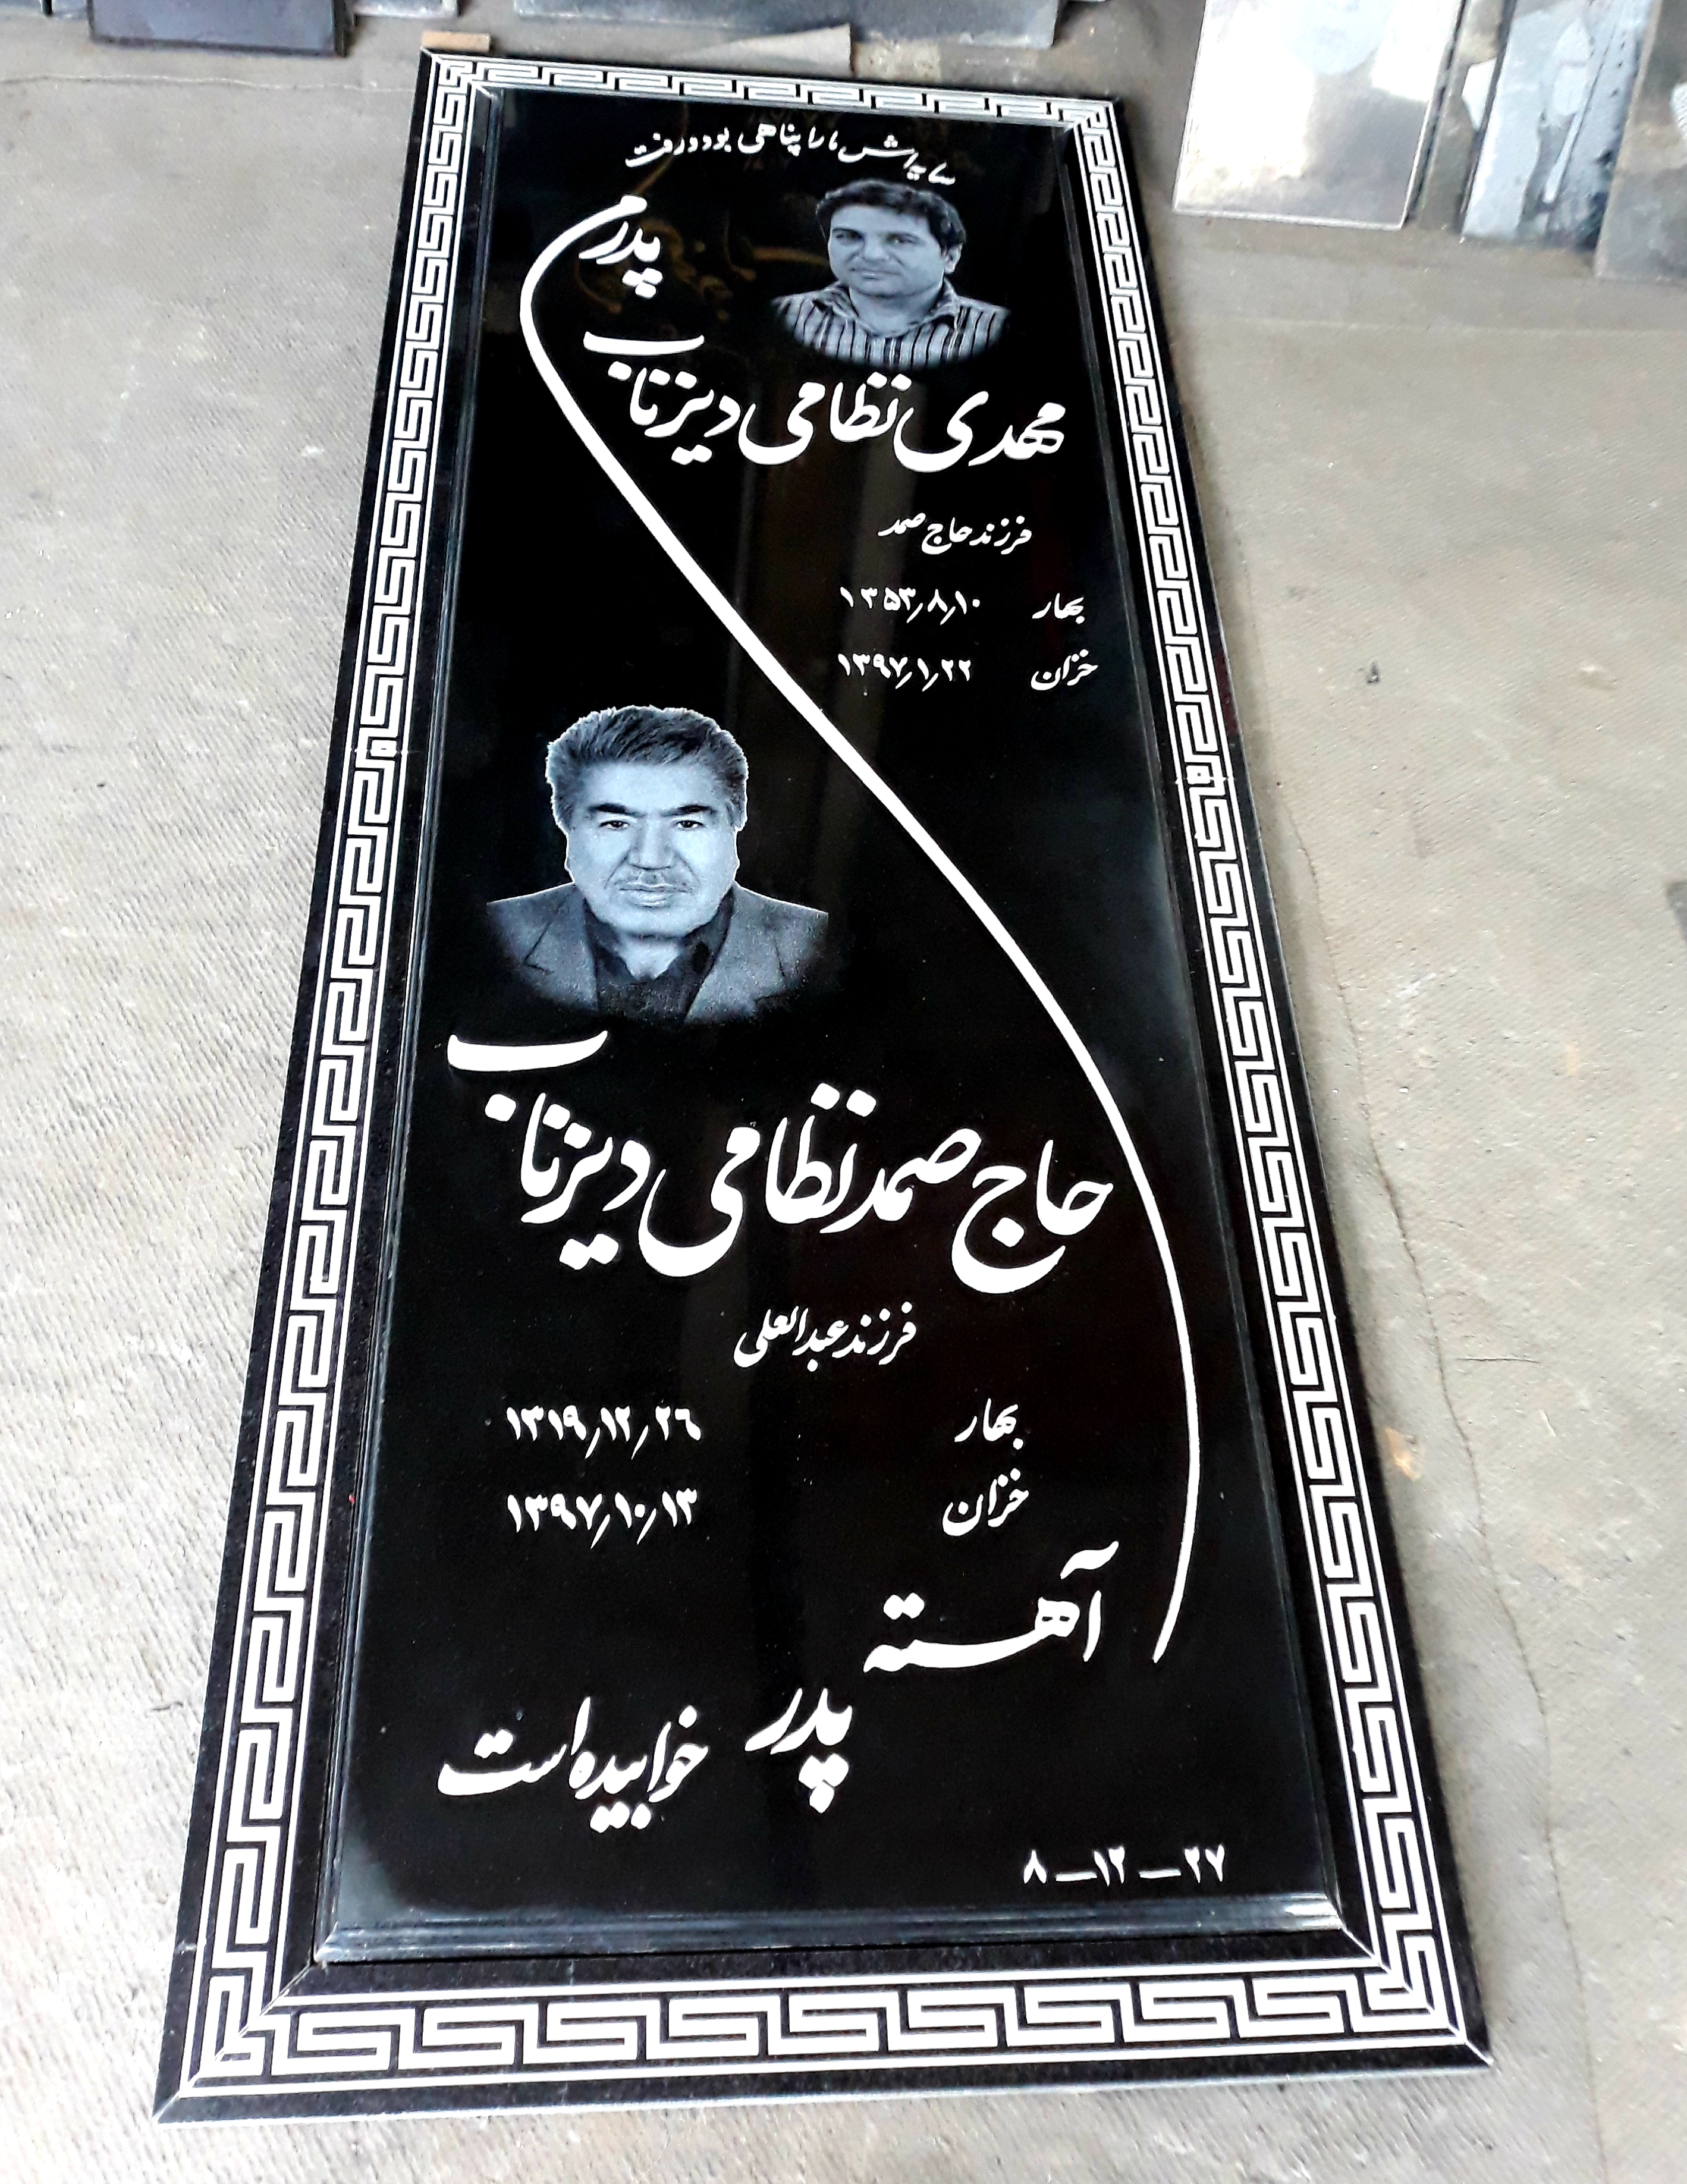 سایه‌اش ما را پناهی بود و رفت
پدرم
مهدی نظامی دیزناب
فرزند حاج صمد
بهار ۱۳۵۳٫۸٫۱۰
خزان ۱۳۹۷٫۱٫۲۲
حاج صمد نظامی دیزناب
فرزند عبدالعلی
بهار ۱۳۱۹٫۱۲٫۲۶
خزان ۱۳۹۷٫۱۰٫۱۳
آهسته
پدر
خوابیده است
۸ – ۱۲ – ۲۷